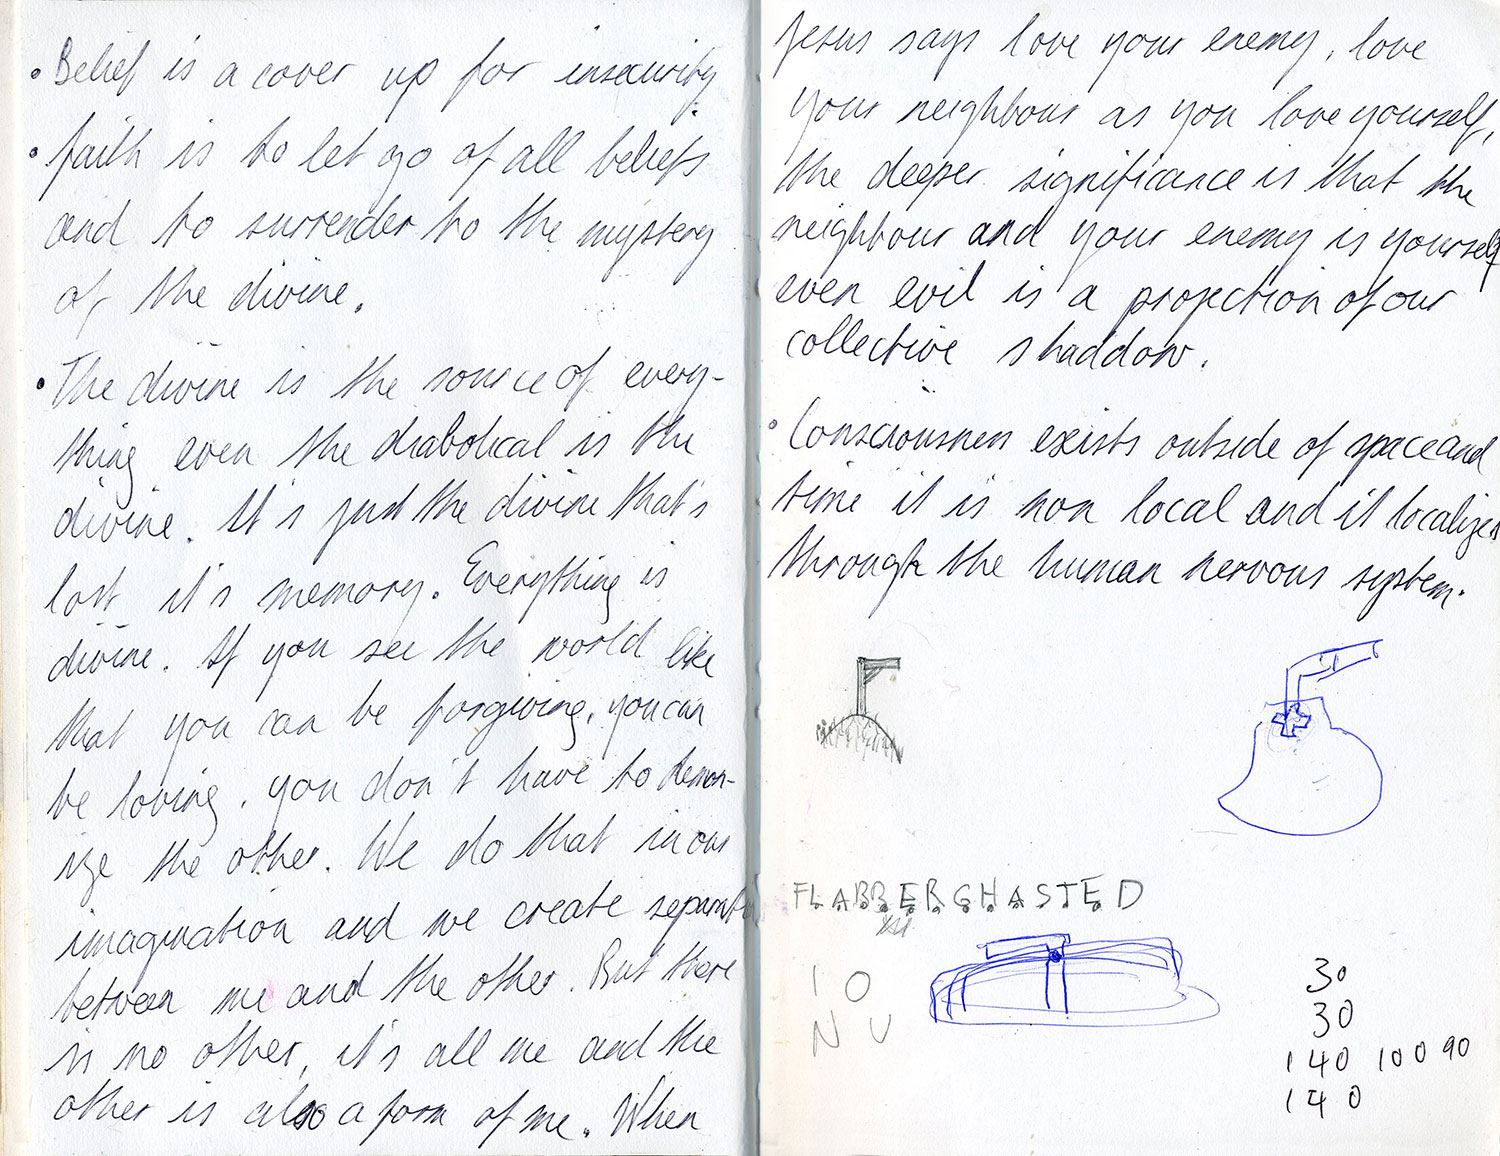 • Belief is a cover up for insecurity.
• faith is to let go of all beliefs
and to surrender to the mystery
of the divine.
• The divine is the source of every-
thing even the diabolical is the
divine. It's just the divine that's
lost it's memory. Everything is
divine. If you see the world like
that you can be forgiving, you can
be loving, you don't have to demon-
ize the other. We do that in our
imagination and we create separation
between me and the other. But there
is no other, it's all me and the
other is also a form of me. When
Jesus says love your enemy, love
your neighbour as you love yourself,
the deeper significance is that the
neighbour and your enemy is yourself
even evil is a projection of our
collective shaddow.
• Consciousness exists outside of space and
time it is non local and it localizes
through the human nervous system.
FLABBERGHASTED
I O
N U
30
30
140 100 90
140